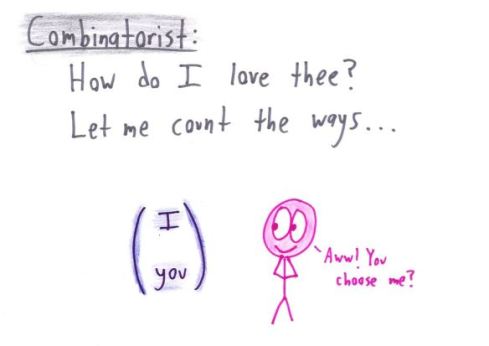 Combinatorist:
How do I love thee?
Let me count the ways...
I
you
Aww! You
choose me?